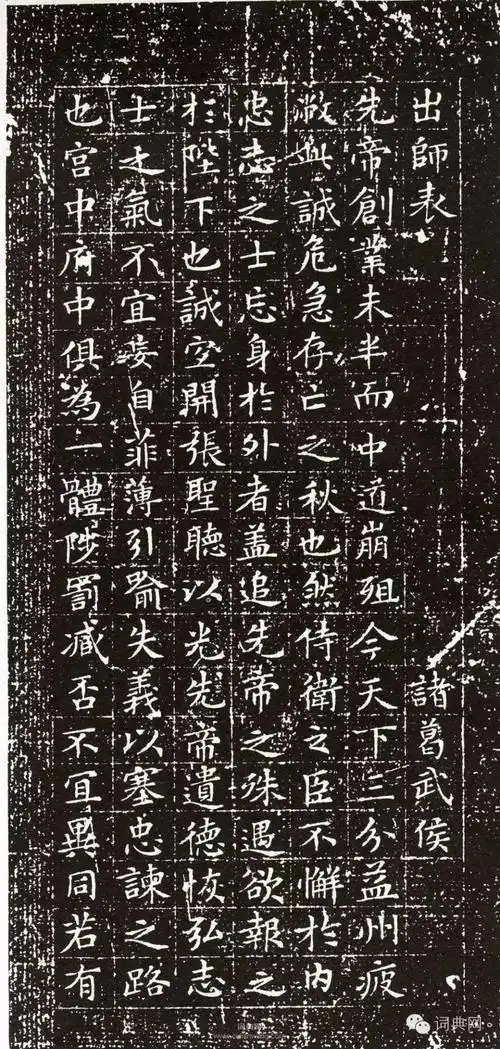 出師表 諸葛武侯
先帝創業未半而中道崩殂今天下三分益州疲
敝此誠危急存亡之秋也然侍衛之臣不懈於内
忠志之士忘身於外者盖追先帝之殊遇欲報之
於陛下也誠宜開張聖聽以光先帝遺德恢弘志
士之氣不宜妄自菲薄引喻失義以塞忠諫之路
也宫中府中俱為一體陟罰臧否不宜異同若有
词典网